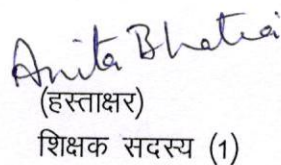 Anita Bhatia
(हस्ताक्षर)
शिक्षक सदस्य (1)